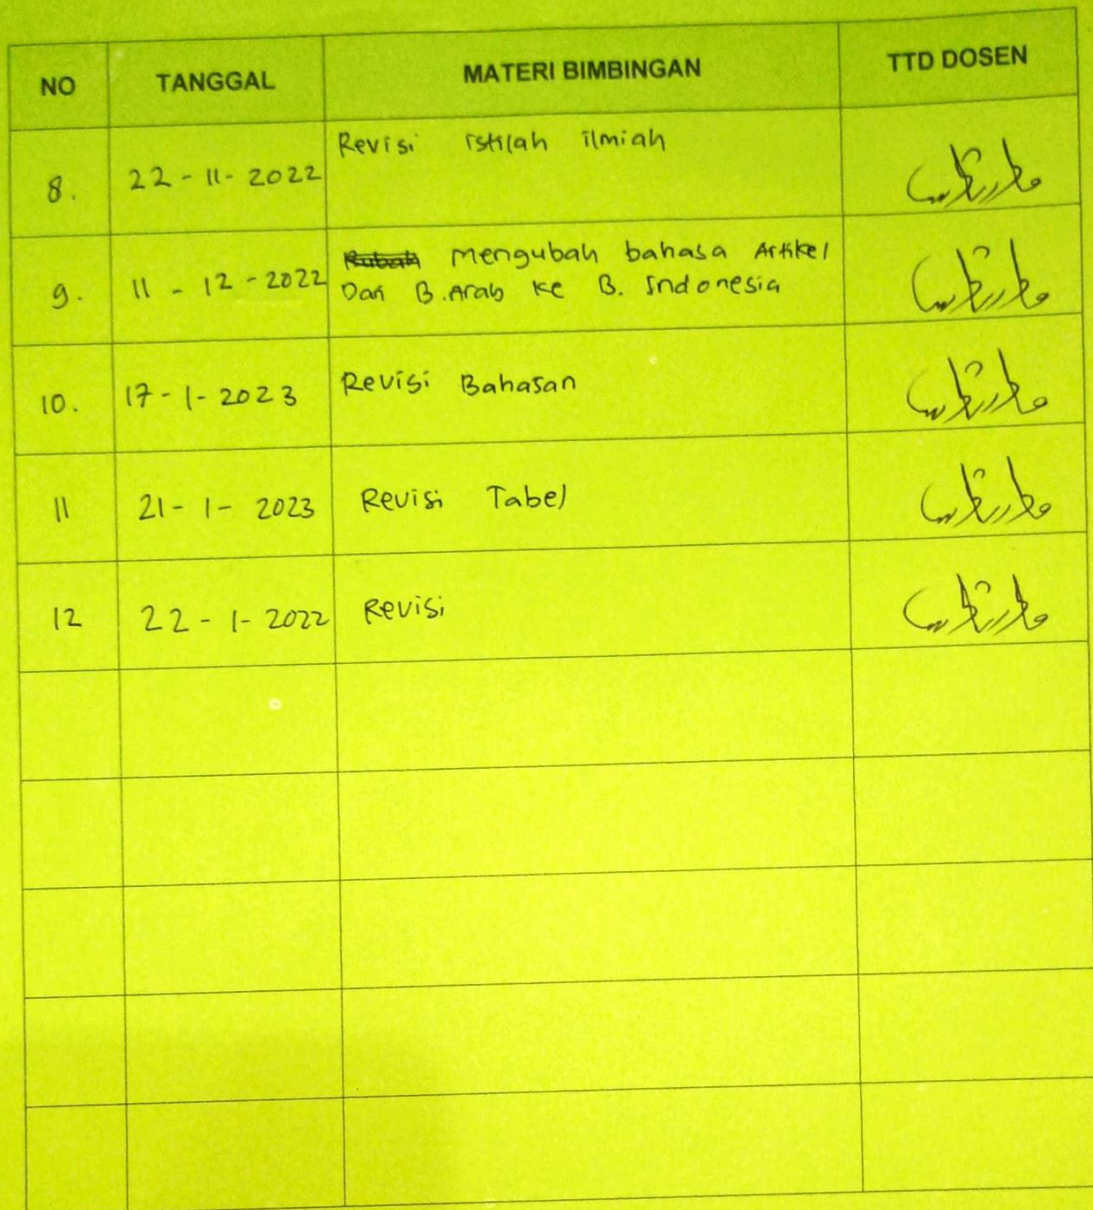 NO TANGGAL MATERI BIMBINGAN TTD DOSEN
8. 22-11-2022 Revisi istilah ilmiah
9. 11-12-2022 mengubah bahasa Artikel
Dari B.Arab ke B. Indonesia
10. 17-1-2023 Revisi Bahasan
11 21-1-2023 Revisi Tabel
12 22-1-2022 Revisi